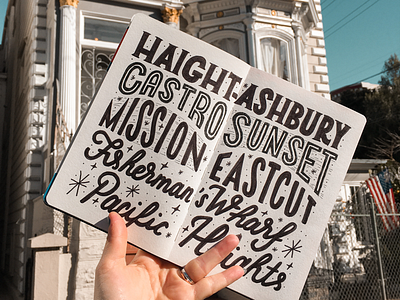 HAIGHT-ASHBURY
CASTRO SUNSET
MISSION EASTCUT
Fisherman's Wharf
Pacific Heights